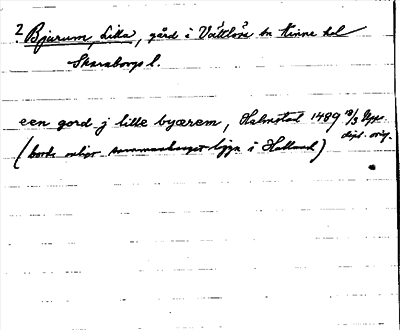 ? Bjurum, Lilla, gård i Vättlösa sn Kinne hd
Skaraborgs l.
een gord j lille byærem, Halmstad 1489 18/3 Upps.
dipl. orig.
(borde enligt sammanhanget ligga i Halland)